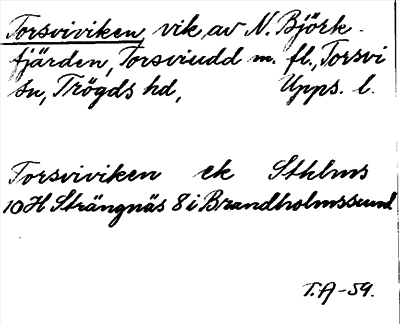 Torsviviken vik av N. Björk-
fjärden, Torsviudd m. fl., Torsvi
sn, Trögds hd, Upps. l.
Torsviviken ek Sthlms
10H Strängnäs 8 i Brandholmssund
T.A-59.